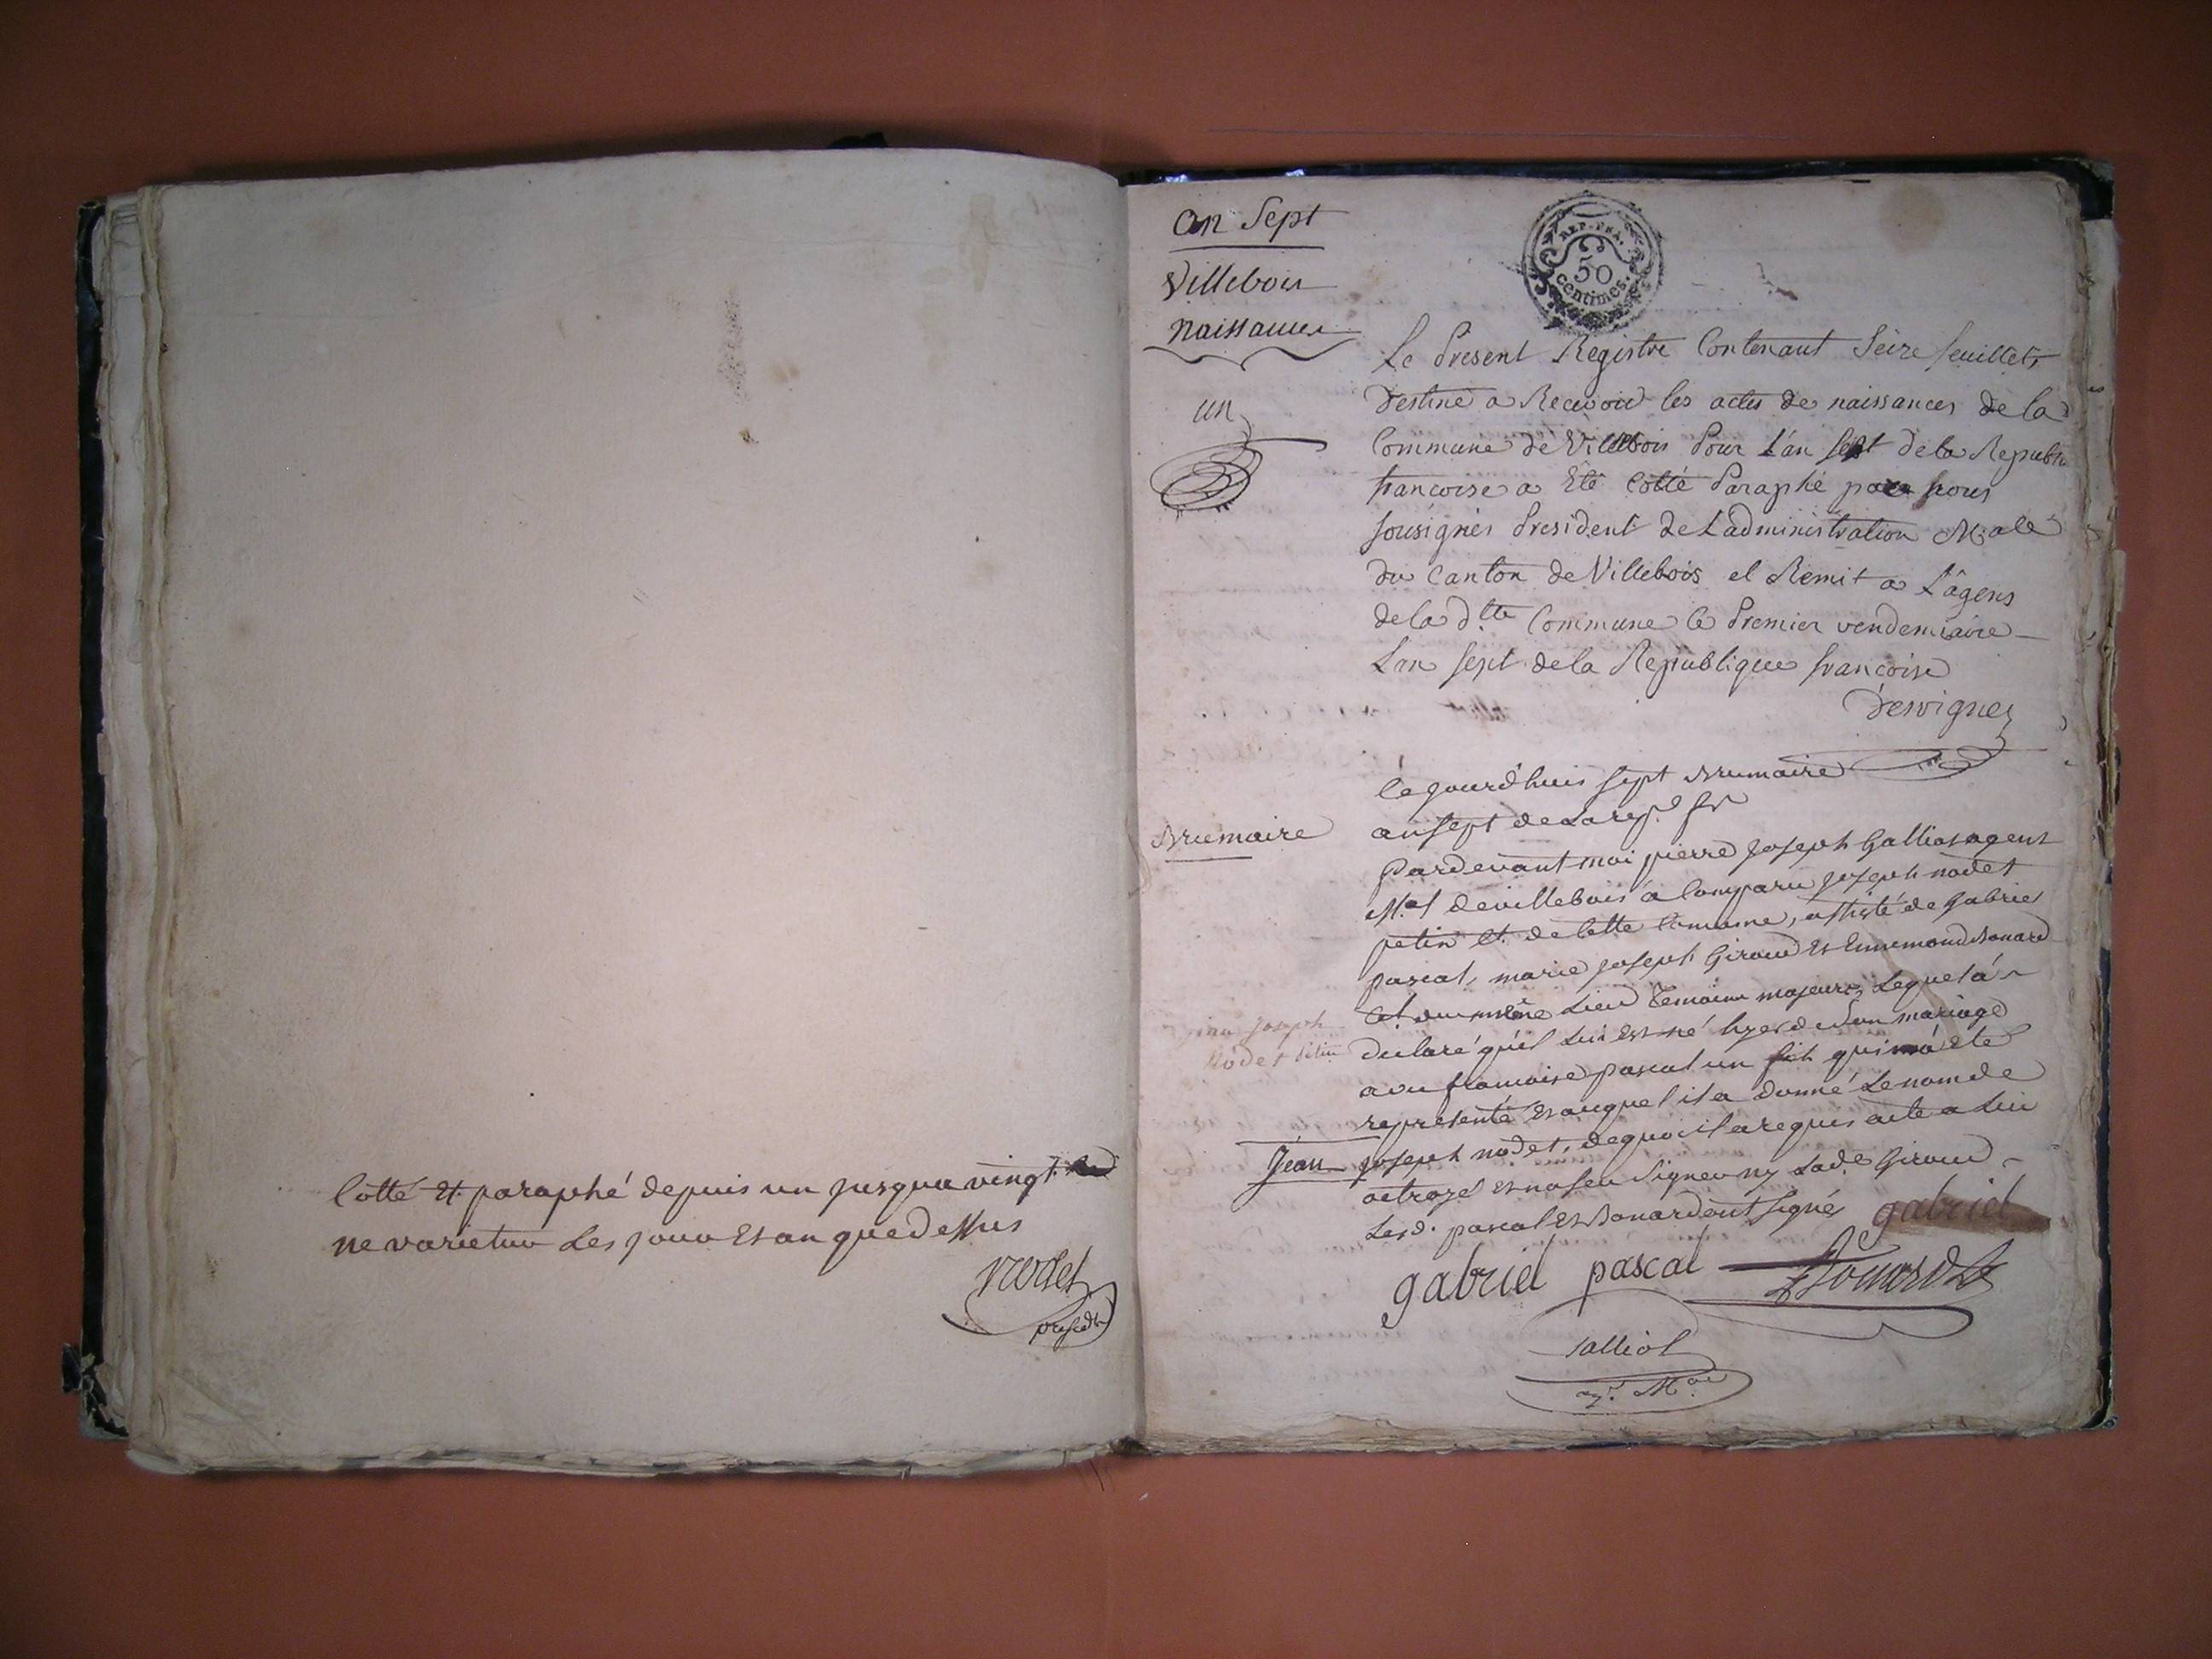 Cotté et paraphé depuis un jusqua vingt
ne varietur les jour et an que dessus
Nodet
presidt
an Sept
Villebois
naissances
un
REP. FRA.
50
centimes.
Le Present Registre Contenant Seize feuillets
Destiné a Recevoir les actes de naissances de la
Commune de Villebois Pour L'an Sept de la Republi
francoise a Eté Cotté Paraphé par nous
sousignés President de L'administration M.ale
du Canton de Villebois et Remit a L'âgens
de la d.tte Commune le Premier vendemiaire
L'an sept de la Republique francoise
Dervignes
Brumaire
Cejourdhuis sept Brumaire
an sept de La rep. fr
Pardevant moi pierre joseph Galliot agent
M.al de villebois à Comparu joseph nodet
petin Ct. de Cette Commune, assisté de gabriel
pascal, marie joseph Giroud et Ennemond Bonard
Ct. du même Lieu Temoins majeurs, Lequel à
jean joseph
Nodet Petin
declaré qu'il Lui est né hyer de son mariage
avec francoise pascal un fils qui m'a été
representé et auquel il a donné Le nom de
Jean joseph nodet, de quoi il a requis acte a Lui
octroyé et n'a seu signer ny Lad. Giroud
Lesd. pascal et Bonard ont signés gabriel
gabriel pascal Bonard
Galliot
ag.t M.al